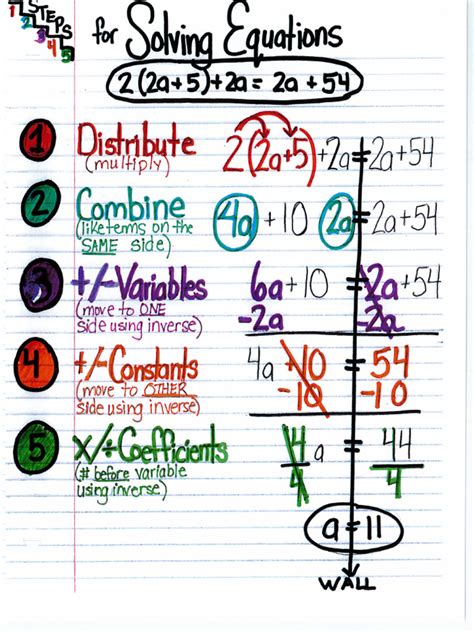 1 STEPS
2
3
4
5
for Solving Equations
2(2a+5)+2a = 2a+54
1 Distribute 2(2a+5)+2a=2a+54
(multiply)
2 Combine 4a+10 2a=2a+54
(like terms on the
SAME side)
3 +/-Variables 6a+10=2a+54
(move to ONE -2a -2a
side using inverse)
4 +/-Constants 4a+10=54
(move to OTHER -10 -10
side using inverse)
5 X/÷Coefficients 4a=44
(# before variable 4 4
using inverse)
a=11
WALL